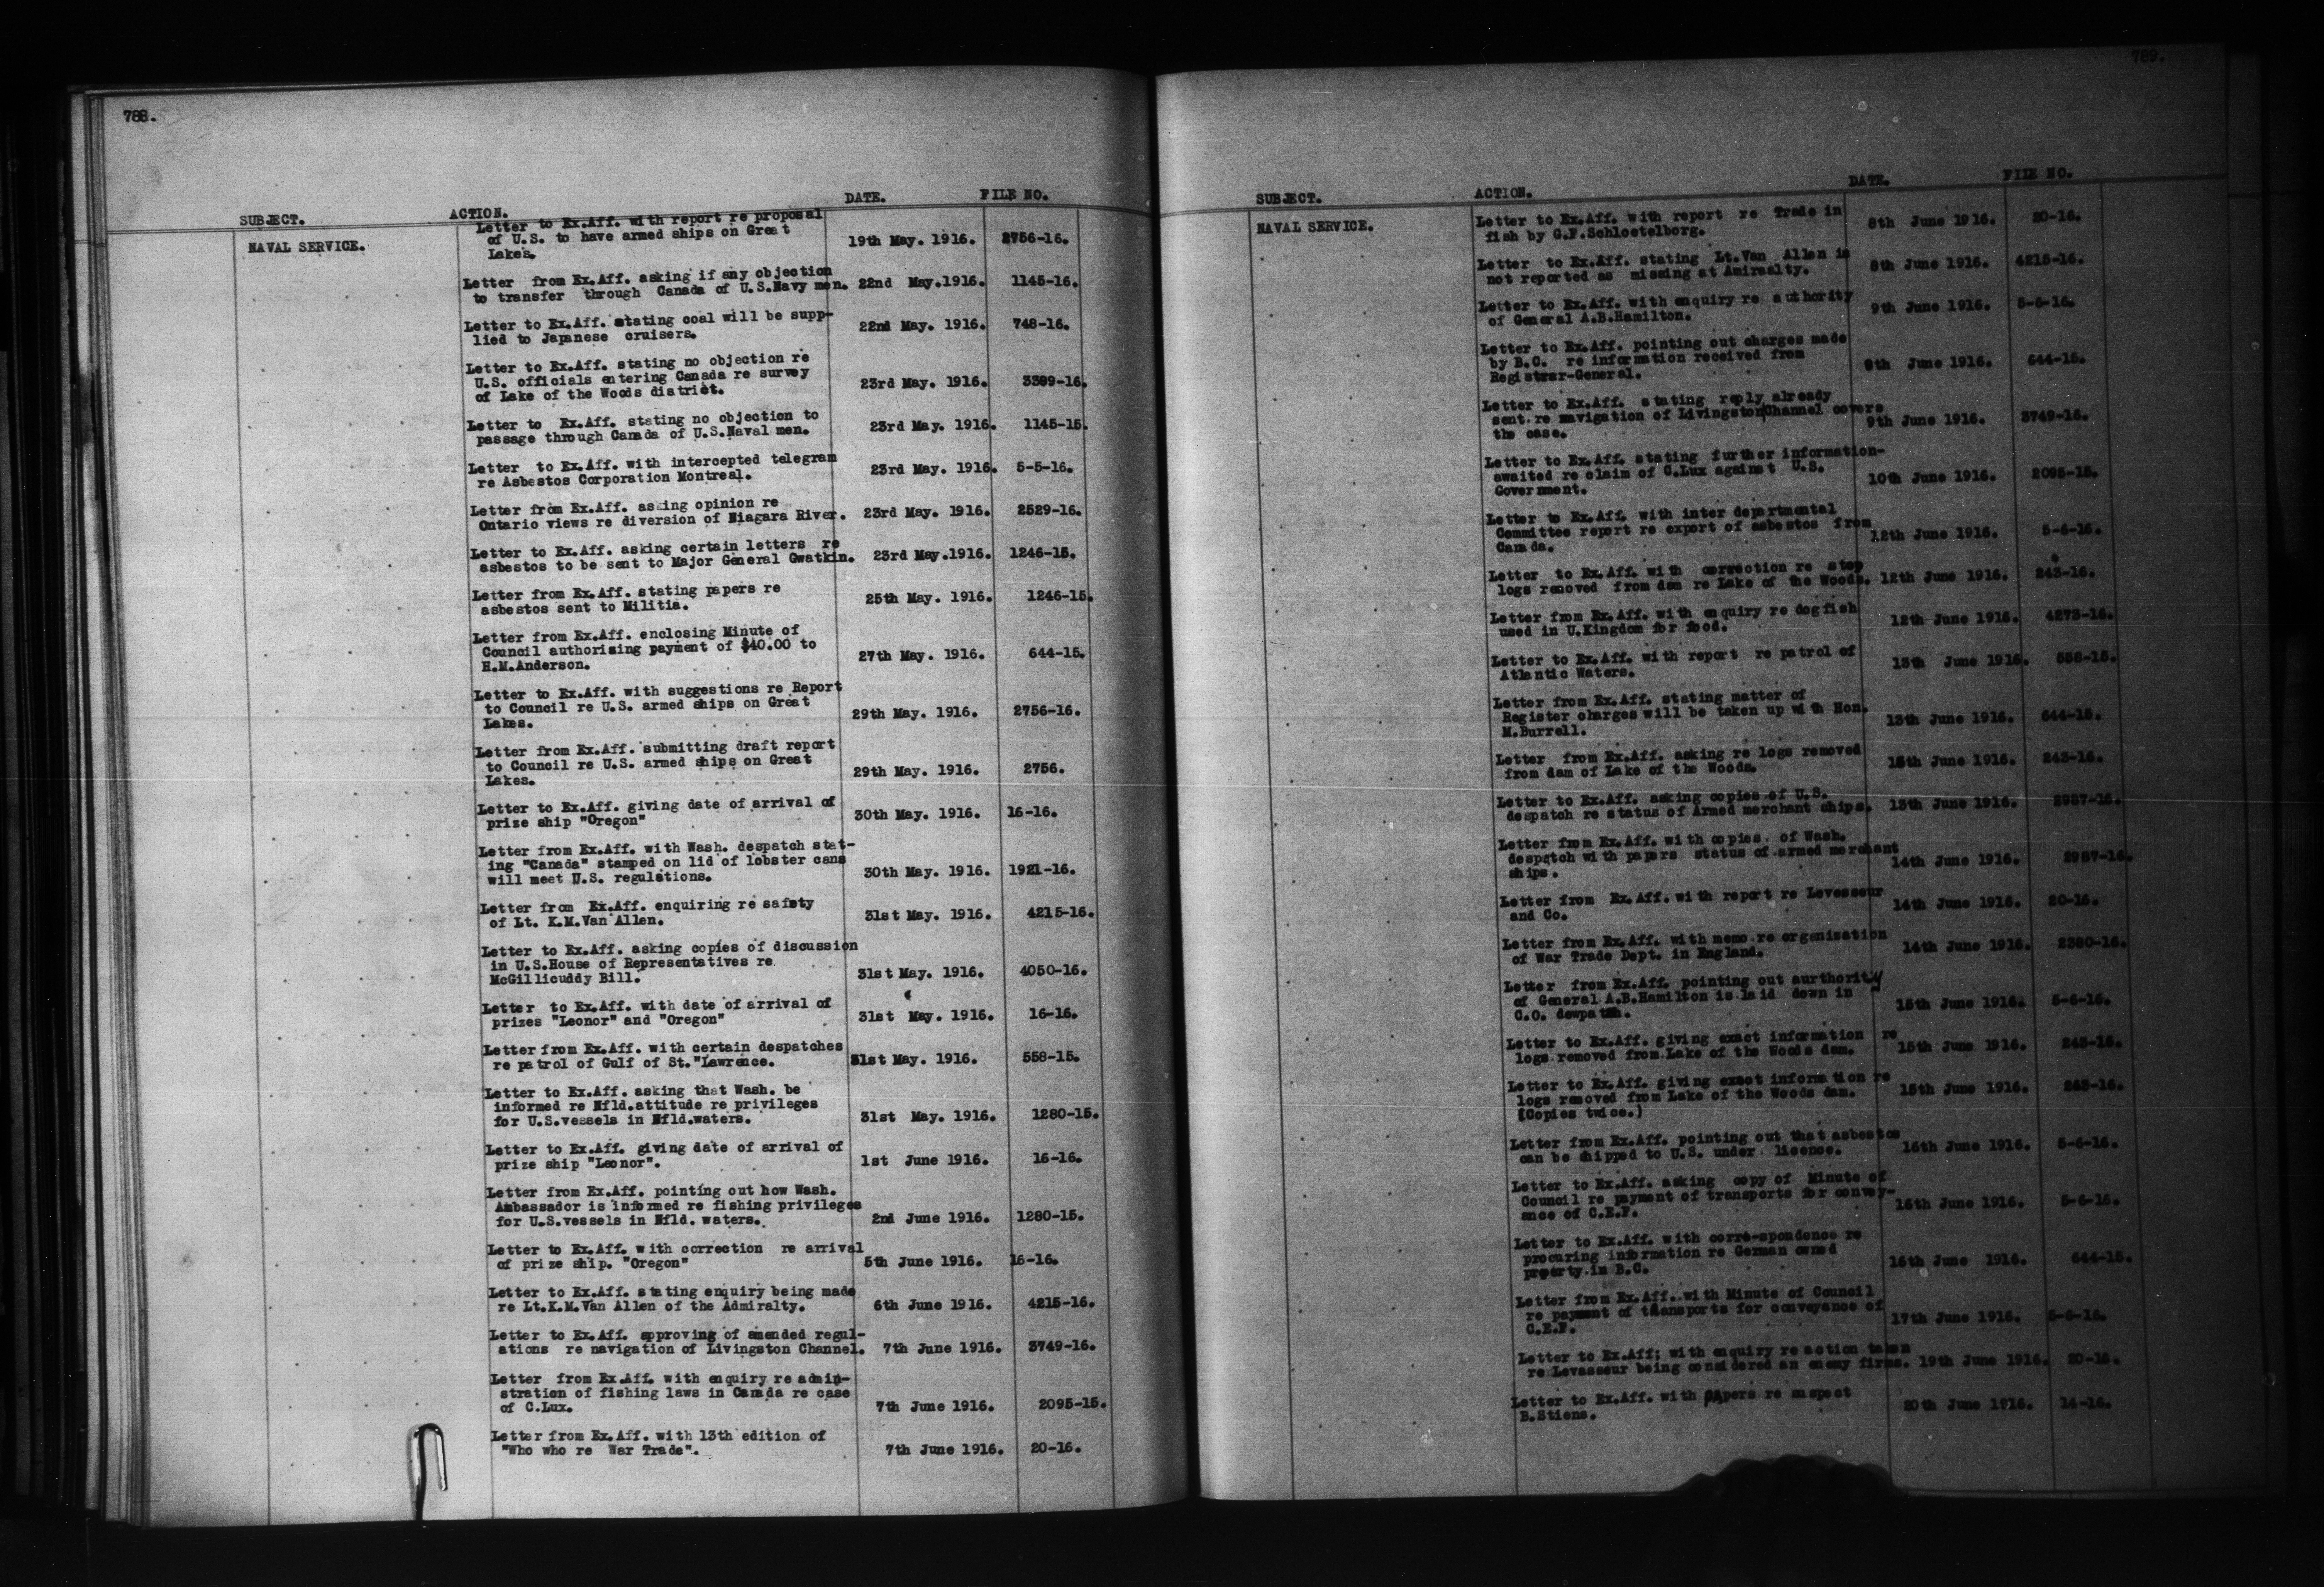 788.
SUBJECT. ACTION. DATE. FILE NO.
NAVAL SERVICE.
Letter to Ex.Aff. with report re proposal
of U.S. to have armed ships on Great
Lakes. 19th May. 1916. 2756-16.
Letter from Ex.Aff. asking if any objection
to transfer through Canada of U.S.Navy men. 22nd May.1916. 1145-16.
Letter to Ex.Aff. stating coal will be supp-
lied to Japanese cruisers. 22nd May. 1916. 748-16.
Letter to Ex.Aff. stating no objection re
U.S. officials entering Canada re survey
of Lake of the Woods district. 23rd May. 1916. 3389-16.
Letter to Ex.Aff. stating no objection to
passage through Canada of U.S.Naval men. 23rd May. 1916. 1145-15.
Letter to Ex.Aff. with intercepted telegram
re Asbestos Corporation Montreal. 23rd May. 1916. 5-5-16.
Letter from Ex.Aff. asking opinion re
Ontario views re diversion of Niagara River. 23rd May. 1916. 2529-16.
Letter to Ex.Aff. asking certain letters re
asbestos to be sent to Major General Gwatkin. 23rd May.1916. 1246-15.
Letter from Ex.Aff. stating papers re
asbestos sent to Militia. 25th May. 1916. 1246-15.
Letter from Ex.Aff. enclosing Minute of
Council authorising payment of $40.00 to
H.M.Anderson. 27th May. 1916. 644-15.
Letter to Ex.Aff. with suggestions re Report
to Council re U.S. armed ships on Great
Lakes. 29th May. 1916. 2756-16.
Letter from Ex.Aff. submitting draft report
to Council re U.S. armed ships on Great
Lakes. 29th May. 1916. 2756.
Letter to Ex.Aff. giving date of arrival of
prize ship "Oregon" 30th May. 1916. 16-16.
Letter from Ex.Aff. with Wash. despatch stat-
ing "Canada" stamped on lid of lobster cans
will meet U.S. regulations. 30th May. 1916. 1921-16.
Letter from Ex.Aff. enquiring re safety
of Lt. K.M.Van Allen. 31st May. 1916. 4215-16.
Letter to Ex.Aff. asking copies of discussion
in U.S.House of Representatives re
McGillicuddy Bill. 31st May. 1916. 4050-16.
Letter to Ex.Aff. with date of arrival of
prizes "Leonor" and "Oregon" 31st May. 1916. 16-16.
Letter from Ex.Aff. with certain despatches
re patrol of Gulf of St."Lawrence. 31st May. 1916. 558-15.
Letter to Ex.Aff. asking that Wash. be
informed re Nfld.attitude re privileges
for U.S.vessels in Nfld.waters. 31st May. 1916. 1280-15.
Letter to Ex.Aff. giving date of arrival of
prize ship "Leonor". 1st June 1916. 16-16.
Letter from Ex.Aff. pointing out how Wash.
Ambassador is informed re fishing privileges
for U.S.vessels in Nfld. waters. 2nd June 1916. 1280-15.
Letter to Ex.Aff. with correction re arrival
of prize ship. "Oregon" 5th June 1916. 16-16.
Letter to Ex.Aff. stating enquiry being made
re Lt.K.M.Van Allen of the Admiralty. 6th June 1916. 4215-16.
Letter to Ex.Aff. approving of amended regul-
ations re navigation of Livingston Channel. 7th June 1916. 3749-16.
Letter from Ex.Aff. with enquiry re admin-
stration of fishing laws in Canada re case
of C.Lux. 7th June 1916. 2095-15.
Letter from Ex.Aff. with 13th edition of
"Who who re War Trade". 7th June 1916. 20-16.
789.
SUBJECT. ACTION. DATE. FILE NO.
NAVAL SERVICE.
Letter to Ex.Aff. with report re Trade in
fish by G.F.Schloetelborg. 8th June 1916. 20-16.
Letter to Ex.Aff. stating Lt.Van Allen is
not reported as missing at Amiraalty. 8th June 1916. 4215-16.
Letter to Ex.Aff. with enquiry re authority
of General A.B.Hamilton. 9th June 1916. 5-6-16.
Letter to Ex.Aff. pointing out charges made
by B.C. re information received from
Registrar-General. 9th June 1916. 644-15.
Letter to Ex.Aff. stating reply already
sent re navigation of Livingston Channel covers
the case. 9th June 1916. 3749-16.
Letter to Ex.Aff. stating further information-
awaited re claim of C.Lux against U.S.
Government. 10th June 1916. 2095-15.
Letter to Ex.Aff. with inter departmental
Committee report re export of asbestos from
Canada. 12th June 1916. 5-6-16.
Letter to Ex.Aff. with correction re stop
logs removed from dam re Lake of the Woods. 12th June 1916. 243-16.
Letter from Ex.Aff. with enquiry re dogfish
used in U.Kingdom for food. 12th June 1916. 4273-16.
Letter to Ex.Aff. with report re patrol of
Atlantic Waters. 13th June 1916. 558-15.
Letter from Ex.Aff. stating matter of
Register charges will be taken up with Hon.
M.Burrell. 13th June 1916. 644-15.
Letter from Ex.Aff. asking re logs removed
from dam of Lake of the Woods. 13th June 1916. 243-16.
Letter to Ex.Aff. asking copies of U.S.
despatch re status of Armed merchant ships. 13th June 1916. 2987-16.
Letter from Ex.Aff. with copies of Wash.
despatch with papers status of armed merchant
ships. 14th June 1916. 2987-16.
Letter from Ex.Aff. with report re Levesseur
and Co. 14th June 1916. 20-16.
Letter from Ex.Aff. with memo re organization
of War Trade Dept. in England. 14th June 1916. 2380-16.
Letter from Ex.Aff. pointing out aurthority
of General A.B.Hamilton is laid down in
C.O. dewpatch. 15th June 1916. 5-6-16.
Letter to Ex.Aff. giving exact information re
logs removed from Lake of the Woods dam. 15th June 1916. 243-16.
Letter to Ex.Aff. giving exact information re
logs removed from Lake of the Woods dam.
(Copies twice.) 15th June 1916. 263-16.
Letter from Ex.Aff. pointing out that asbestos
can be shipped to U.S. under licence. 16th June 1916. 5-6-16.
Letter to Ex.Aff. asking copy of Minute of
Council re payment of transports for convey-
ance of C.E.F. 16th June 1916. 5-6-16.
Letter to Ex.Aff. with corre-spondense re
procuring information re German owned
property in B.C. 16th June 1916. 644-15.
Letter from Ex.Aff. with Minute of Council
re payment of transports for conveyance of
C.E.F. 17th June 1916. 5-6-16.
Letter to Ex.Aff; with enquiry re action taken
re Levasseur being considered an enemy firm. 19th June 1916. 20-16.
Letter to Ex.Aff. with papers re suspect
B.Stiens. 20th June 1916. 14-16.